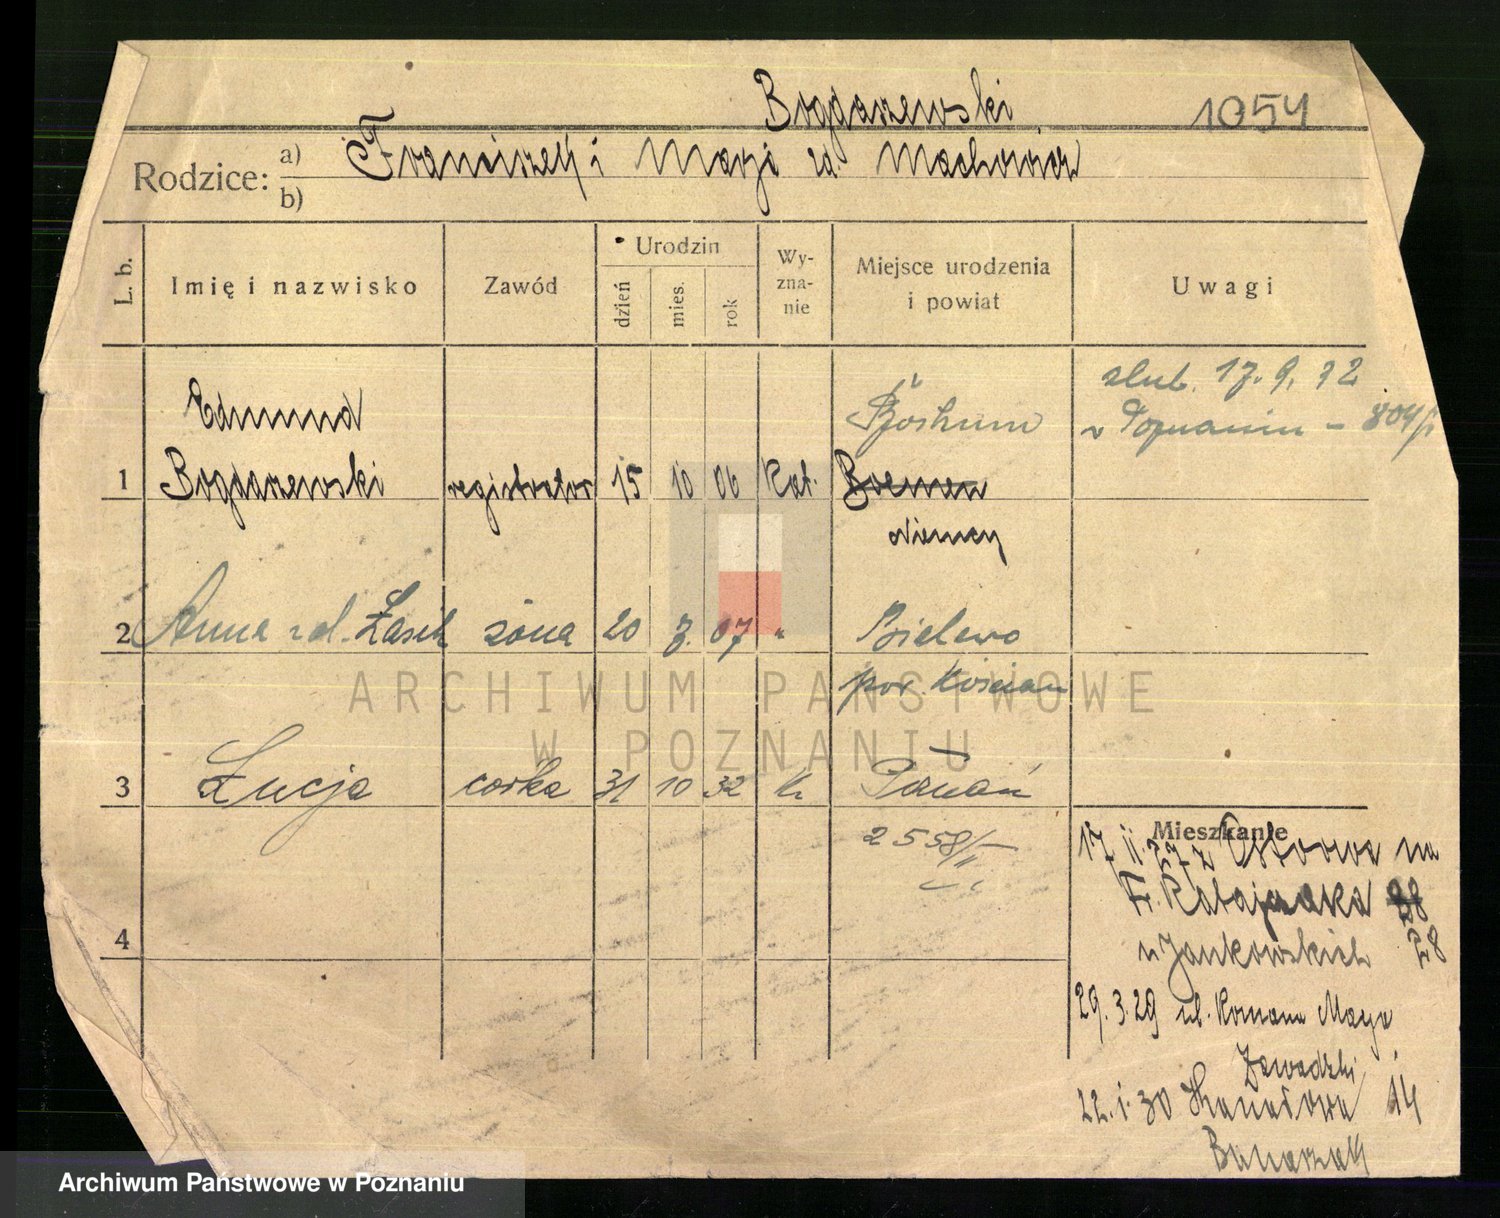 Bogdaszewski 1054
Rodzice: a) Franciszek i Marja zd. Machowicz
b)
L. b. Imię i nazwisko Zawód Urodzin Wyznanie Miejsce urodzenia i powiat Uwagi
dzień mies. rok
Edmund Bochum ślub. 17. 9. 32
w Poznaniu - 804/
1 Bogdaszewski registrator 15 10 06 Kat. Boemen
Niemcy
2 Anna zd. Łasik żona 20 7. 07 " Bielewo
pow. Kościan
3 Łucja córka 31 10 32 k Poznań
2558/II
4
Mieszkanie
17 11. 27 z Ostrowa na
Fr. Ratajczaka 28
28
u Jankowskich
29. 3. 29 ul. Romana Maya
Zawadzki
22. 1. 30 Kanałowa 14
Banaszak
ARCHIWUM PAŃSTWOWE
W POZNANIU
Archiwum Państwowe w Poznaniu